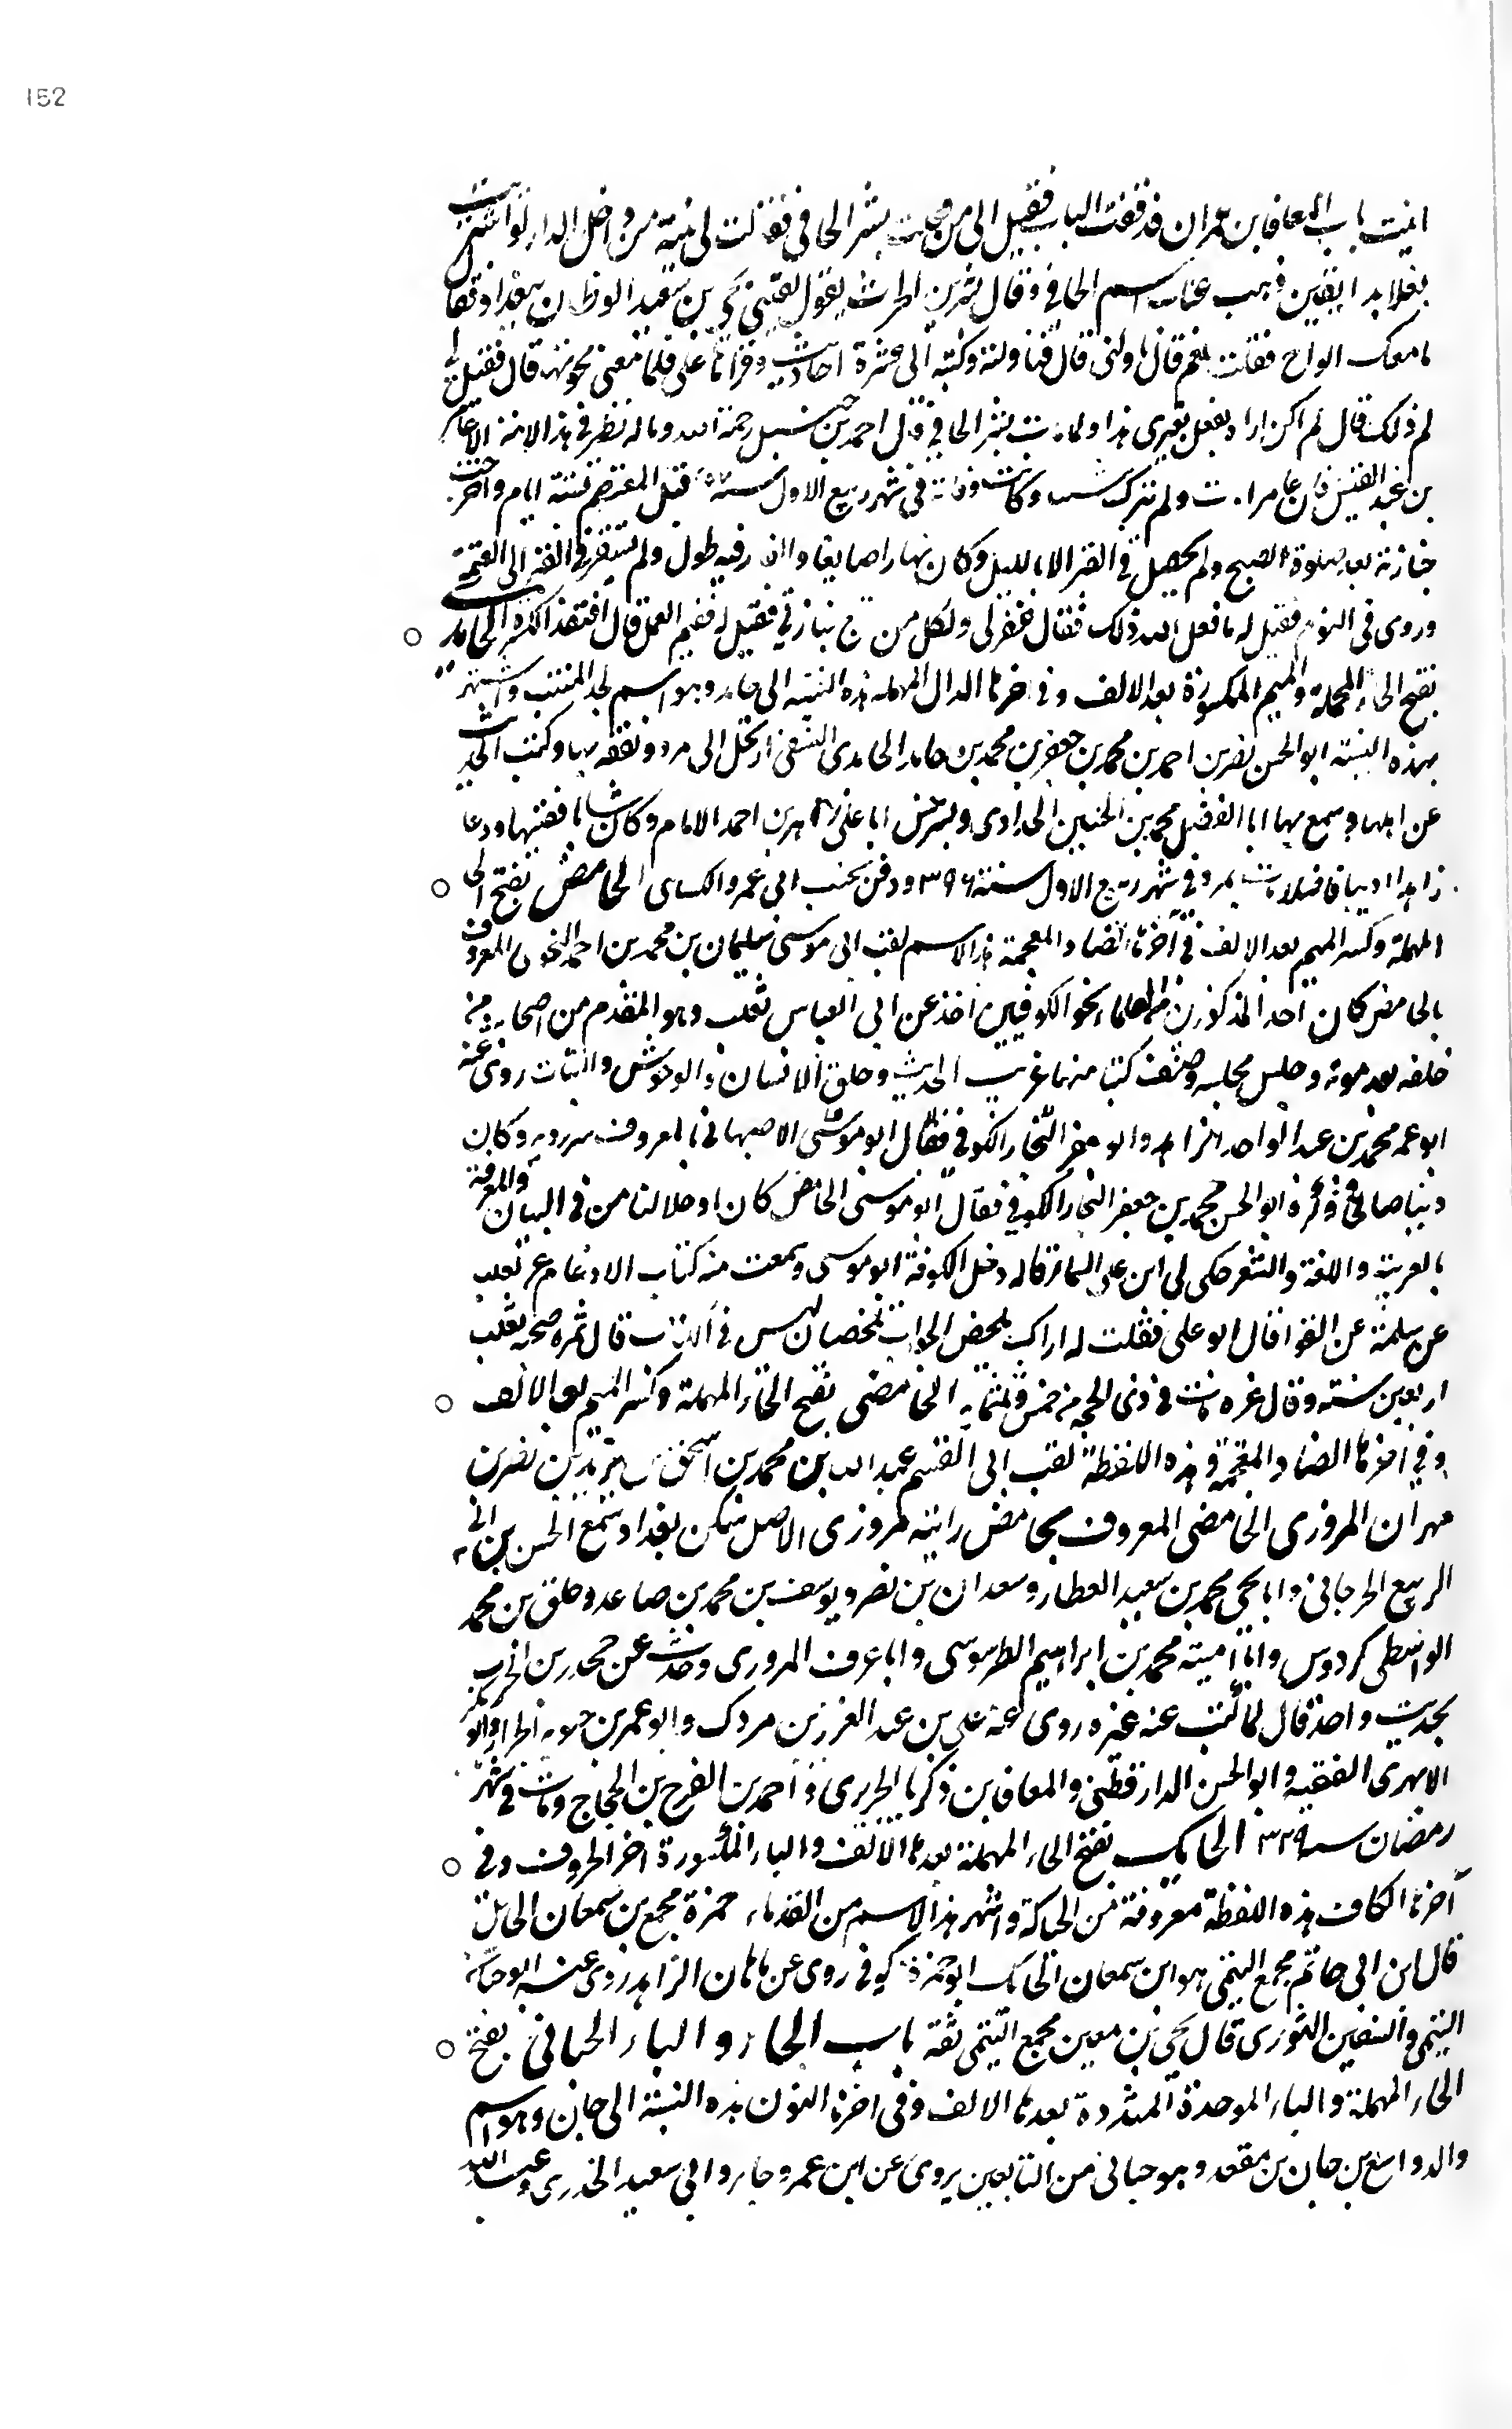 152
اتيت باب المعافا بن عمران فدققت الباب فقيل الى من فقلت بشر الحافي فقالت لى بنية من داخل الدار لو اشتريت
نعلا بدانقين ذهب عنك اسم الحافي وقال بشر بن الحرث يقول لقيني يحيى بن سعيد القطان ببغداد فقال
ما معك الواح فقلت نعم قال ناولني قال فناولته وكتبه الى عشرة احاديث وقراها على فلما مضى محوته قال فقيل له
لم ذلك قال لم اكن اراد يفعل بغيرى هذا ولما مات بشر الحافي قال احمد بن حنبل رحمه الله وما له نظير في هذه الامة الا عامر
بن عبد القيس فان عامرا مات ولم يترك شيئا وكانت وفاته في شهر ربيع الاول سنة قبل المعتصم بستة ايام واخرجت
جنازته بعد صلوة الصبح ولم يحصل في القبر الا بالليل وكان نهارا صايفا والنهار فيه طول ولم يستقر في القبر الى العتمة
وروى في النوم فقيل له ما فعل الله بك فقال غفر لى ولكل من تبع جنازتي فقيل له ففيم العمل قال افتقد الكسرة الحامدى
بفتح الحاء المهملة والميم المكسورة بعد الالف وفي اخرها الدال المهملة هذه النسبة الى حامد وهو اسم لجد المنتسب واشتهر
بهذه النسبة ابو الحسن نصر بن احمد بن محمد بن جعفر بن محمد بن حامد الحامدى النسفى ارتحل الى مرو وتفقه بها وكتب الحديث
عن اهلها وسمع بها ابا الفضل محمد بن الحسين الحدادى وبسرخس ابا على زاهر بن احمد الامام وكان شابا فقيها ورعا
زاهدا اديبا فاضلا مات بمرو في شهر ربيع الاول سنة ٣٩٦ ودفن بجنب ابى عمرو الكسائى الحامض بفتح الحاء
المهملة وكسر الميم بعد الالف في آخرها الضاد المعجمة هذا الاسم لقب ابى موسى سليمان بن محمد بن احمد النحوى المعروف
بالحامض كان احد المذكورين من العلماء بنحو الكوفيين اخذ عن ابى العباس ثعلب وهو المقدم من اصحابه ومن
خلفه بعد موته وجلس مجلسه وصنف كتبا منها غريب الحديث وخلق الانسان والوحوش والنبات روى عنه
ابو عمر محمد بن عبد الواحد الزاهد وابو جعفر الاصبهانى المعروف ببرزويه وكان
دينا صالحا ذكره ابو الحسن محمد بن جعفر النجار الكوفى فقال ابو موسى الحامض كان اوحد الناس في البيان والمعرفة
بالعربية واللغة والشعر حكى لى ابن على النقار قال دخل الكوفة ابو موسى وسمعت منه كتاب الادغام عن ثعلب
عن سلمة عن الفرا قال ابو على فقلت له اراك تلخص الجواب تلخيصا ليس في الكتب قال ثمرة صحبة ثعلب
اربعين سنة وقال غيره مات في ذى الحجة من خمس وثلثمائة الحامضى بفتح الحاء المهملة وكسر الميم بعد الالف
وفي اخرها الضاد المعجمة هذه اللفظة لقب ابى القسم عبد الله بن محمد بن اسحق بن يزيد بن نصر بن
مهران المروزى الحامضى المعروف بحامض راسه مروزى الاصل سكن بغداد سمع الحسن بن ابى
الربيع الجرجانى وابا يحيى محمد بن سعيد العطار وسعدان بن نصر ويوسف بن محمد بن صاعد وخلف بن محمد
الواسطى كردوس وابا امية محمد بن ابراهيم الطرسوسى وابا عوف المروزى وحدث عن جحدر بن الحرث
بحديث واحد قال لم اكتب عنه غيره روى عنه على بن عبد العزيز بن مردك وابو عمر بن حيويه الخزاز وابو بكر
الابهرى الفقيه وابو الحسن الدارقطنى والمعافا بن زكريا الجريرى واحمد بن الفرج بن الحجاج ومات في شهر
رمضان سنة ٣٢٩ الحايك بفتح الحاء المهملة بعدها الالف والياء المكسورة اخر الحروف وفي
آخرها الكاف هذه اللفظة معروفة من الحياكة واشتهر بهذا الاسم من القدماء حمزة مجمع بن سمعان الحايك
قال ابن ابى حاتم مجمع التيمى هو ابن سمعان الحايك ابو حمزة كوفى روى عن ماهان الزاهد روى عنه ابو حيان
التيمى والسفين الثورى قال يحيى بن معين مجمع التيمى ثقة باب الحاء والباء الحبانى بفتح
الحاء المهملة والباء الموحدة المشددة بعدها الالف وفى اخرها النون هذه النسبة الى حبان وهو اسم
والد واسع بن حبان بن منقذ وهو حبانى من التابعين يروى عن ابن عمر وجابر وابى سعيد الخدرى وعبد الله